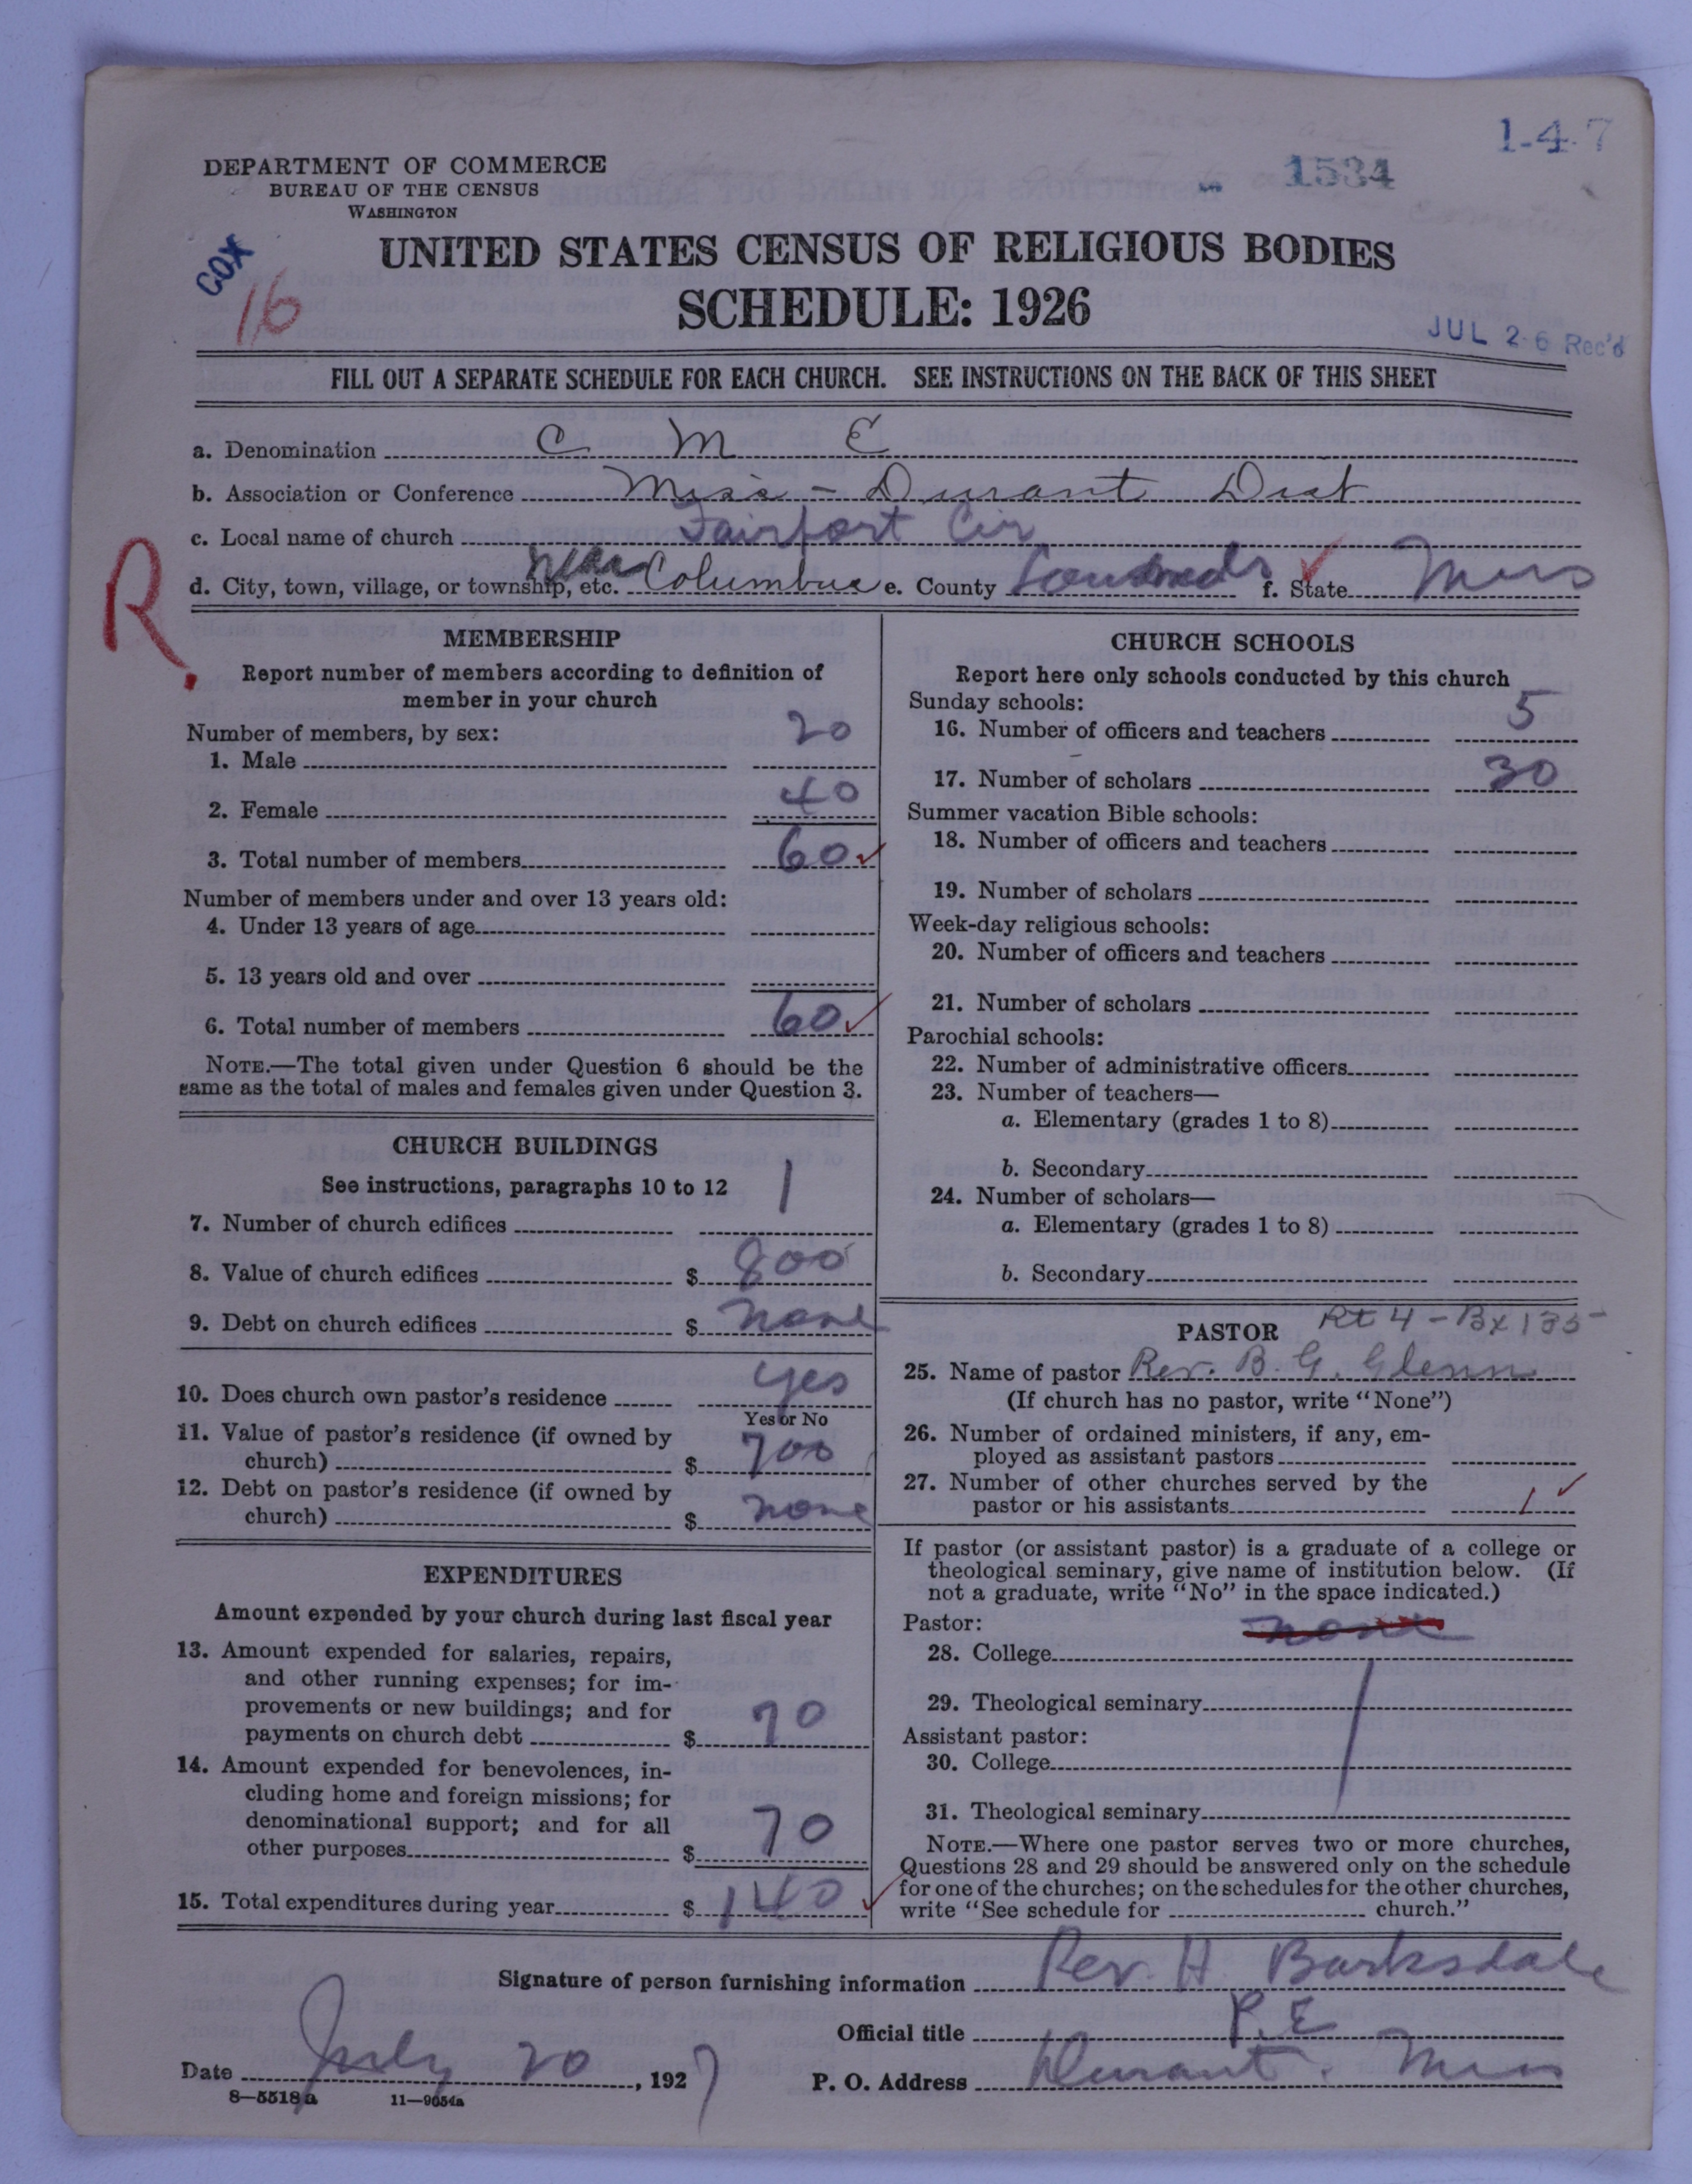 1-4-7
1534
DEPARTMENT OF COMMERCE
BUREAU OF THE CENSUS
WASHINGTON
COX
16
UNITED STATES CENSUS OF RELIGIOUS BODIES
SCHEDULE: 1926
JUL 26 Rec'd
FILL OUT A SEPARATE SCHEDULE FOR EACH CHURCH. SEE INSTRUCTIONS ON THE BACK OF THIS SHEET
a. Denomination C M E
b. Association or Conference Miss - Durant Dist
c. Local name of church Fairport Cir
d. City, town, village, or township, etc. near Columbus e. County f. State Miss
R.
MEMBERSHIP
Report number of members according to definition of
member in your church
Number of members, by sex:
1. Male 20
2. Female 40
3. Total number of members 60
Number of members under and over 13 years old:
4. Under 13 years of age
5. 13 years old and over
6. Total number of members 60
NOTE.—The total given under Question 6 should be the
same as the total of males and females given under Question 3.
CHURCH BUILDINGS
See instructions, paragraphs 10 to 12
7. Number of church edifices 1
8. Value of church edifices $ 800
9. Debt on church edifices $ none
10. Does church own pastor's residence yes
Yes or No
11. Value of pastor's residence (if owned by
church) $ 700
12. Debt on pastor's residence (if owned by
church) $ none
EXPENDITURES
Amount expended by your church during last fiscal year
13. Amount expended for salaries, repairs,
and other running expenses; for im-
provements or new buildings; and for
payments on church debt $ 70
14. Amount expended for benevolences, in-
cluding home and foreign missions; for
denominational support; and for all
other purposes $ 70
15. Total expenditures during year $ 140
CHURCH SCHOOLS
Report here only schools conducted by this church
Sunday schools:
16. Number of officers and teachers 5
17. Number of scholars 30
Summer vacation Bible schools:
18. Number of officers and teachers
19. Number of scholars
Week-day religious schools:
20. Number of officers and teachers
21. Number of scholars
Parochial schools:
22. Number of administrative officers
23. Number of teachers—
a. Elementary (grades 1 to 8)
b. Secondary
24. Number of scholars—
a. Elementary (grades 1 to 8)
b. Secondary
PASTOR Rt 4 - Bx 135
25. Name of pastor Rev. B. G. Glenn
(If church has no pastor, write "None")
26. Number of ordained ministers, if any, em-
ployed as assistant pastors
27. Number of other churches served by the
pastor or his assistants 1
If pastor (or assistant pastor) is a graduate of a college or
theological seminary, give name of institution below. (If
not a graduate, write "No" in the space indicated.)
Pastor: none
28. College
29. Theological seminary
Assistant pastor:
30. College
31. Theological seminary
NOTE.—Where one pastor serves two or more churches,
Questions 28 and 29 should be answered only on the schedule
for one of the churches; on the schedules for the other churches,
write "See schedule for church."
Signature of person furnishing information Rev. H Barksdale
Official title P.E
Date July 20, 1927 P. O. Address Durant. Miss
8—5518a 11—9054a